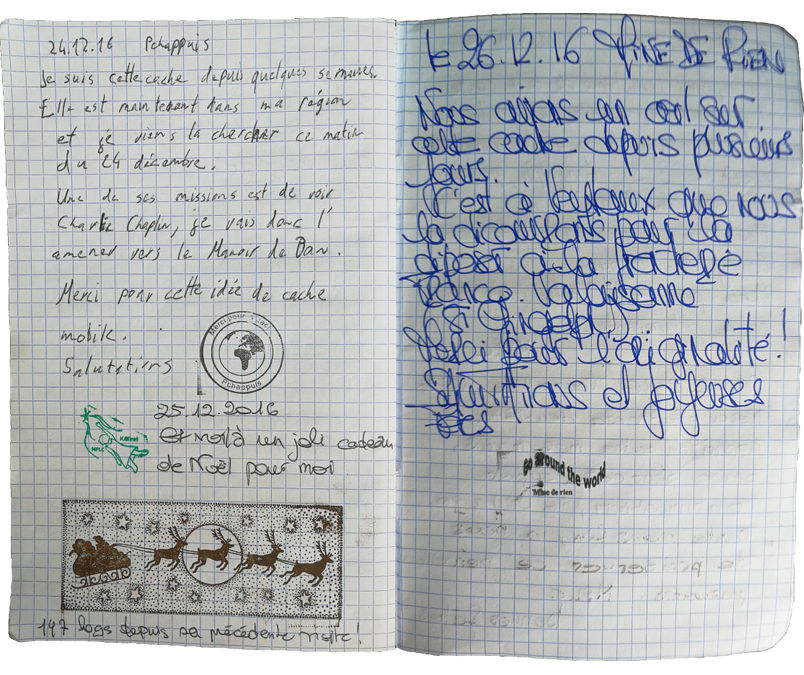 24.12.16 Pchappuis
Je suis cette cache depuis quelques semaines.
Elle est maintenant dans ma région
et je viens la chercher ce matin
du 24 décembre.
Une de ses missions est de voir
Charlie Chaplin, je vais donc l'
amener vers le Manoir de Ban.
Merci pour cette idée de cache
mobile.
Salutations
Merci pour la cache
Pchappuis
25.12.2016
Et voilà un joli cadeau
de Noël pour moi.
147 logs depuis sa précédente visite!
le 26.12.16 MINE DE RIEN
Nous avions un oeil sur
cette cache depuis plusieurs
jours.
C'est à que nous
la pour la
à la
Franco. Valaisanne
Merci pour l'originalité!
Salutations et joyeuses
fêtes
go around the world
Mine de rien